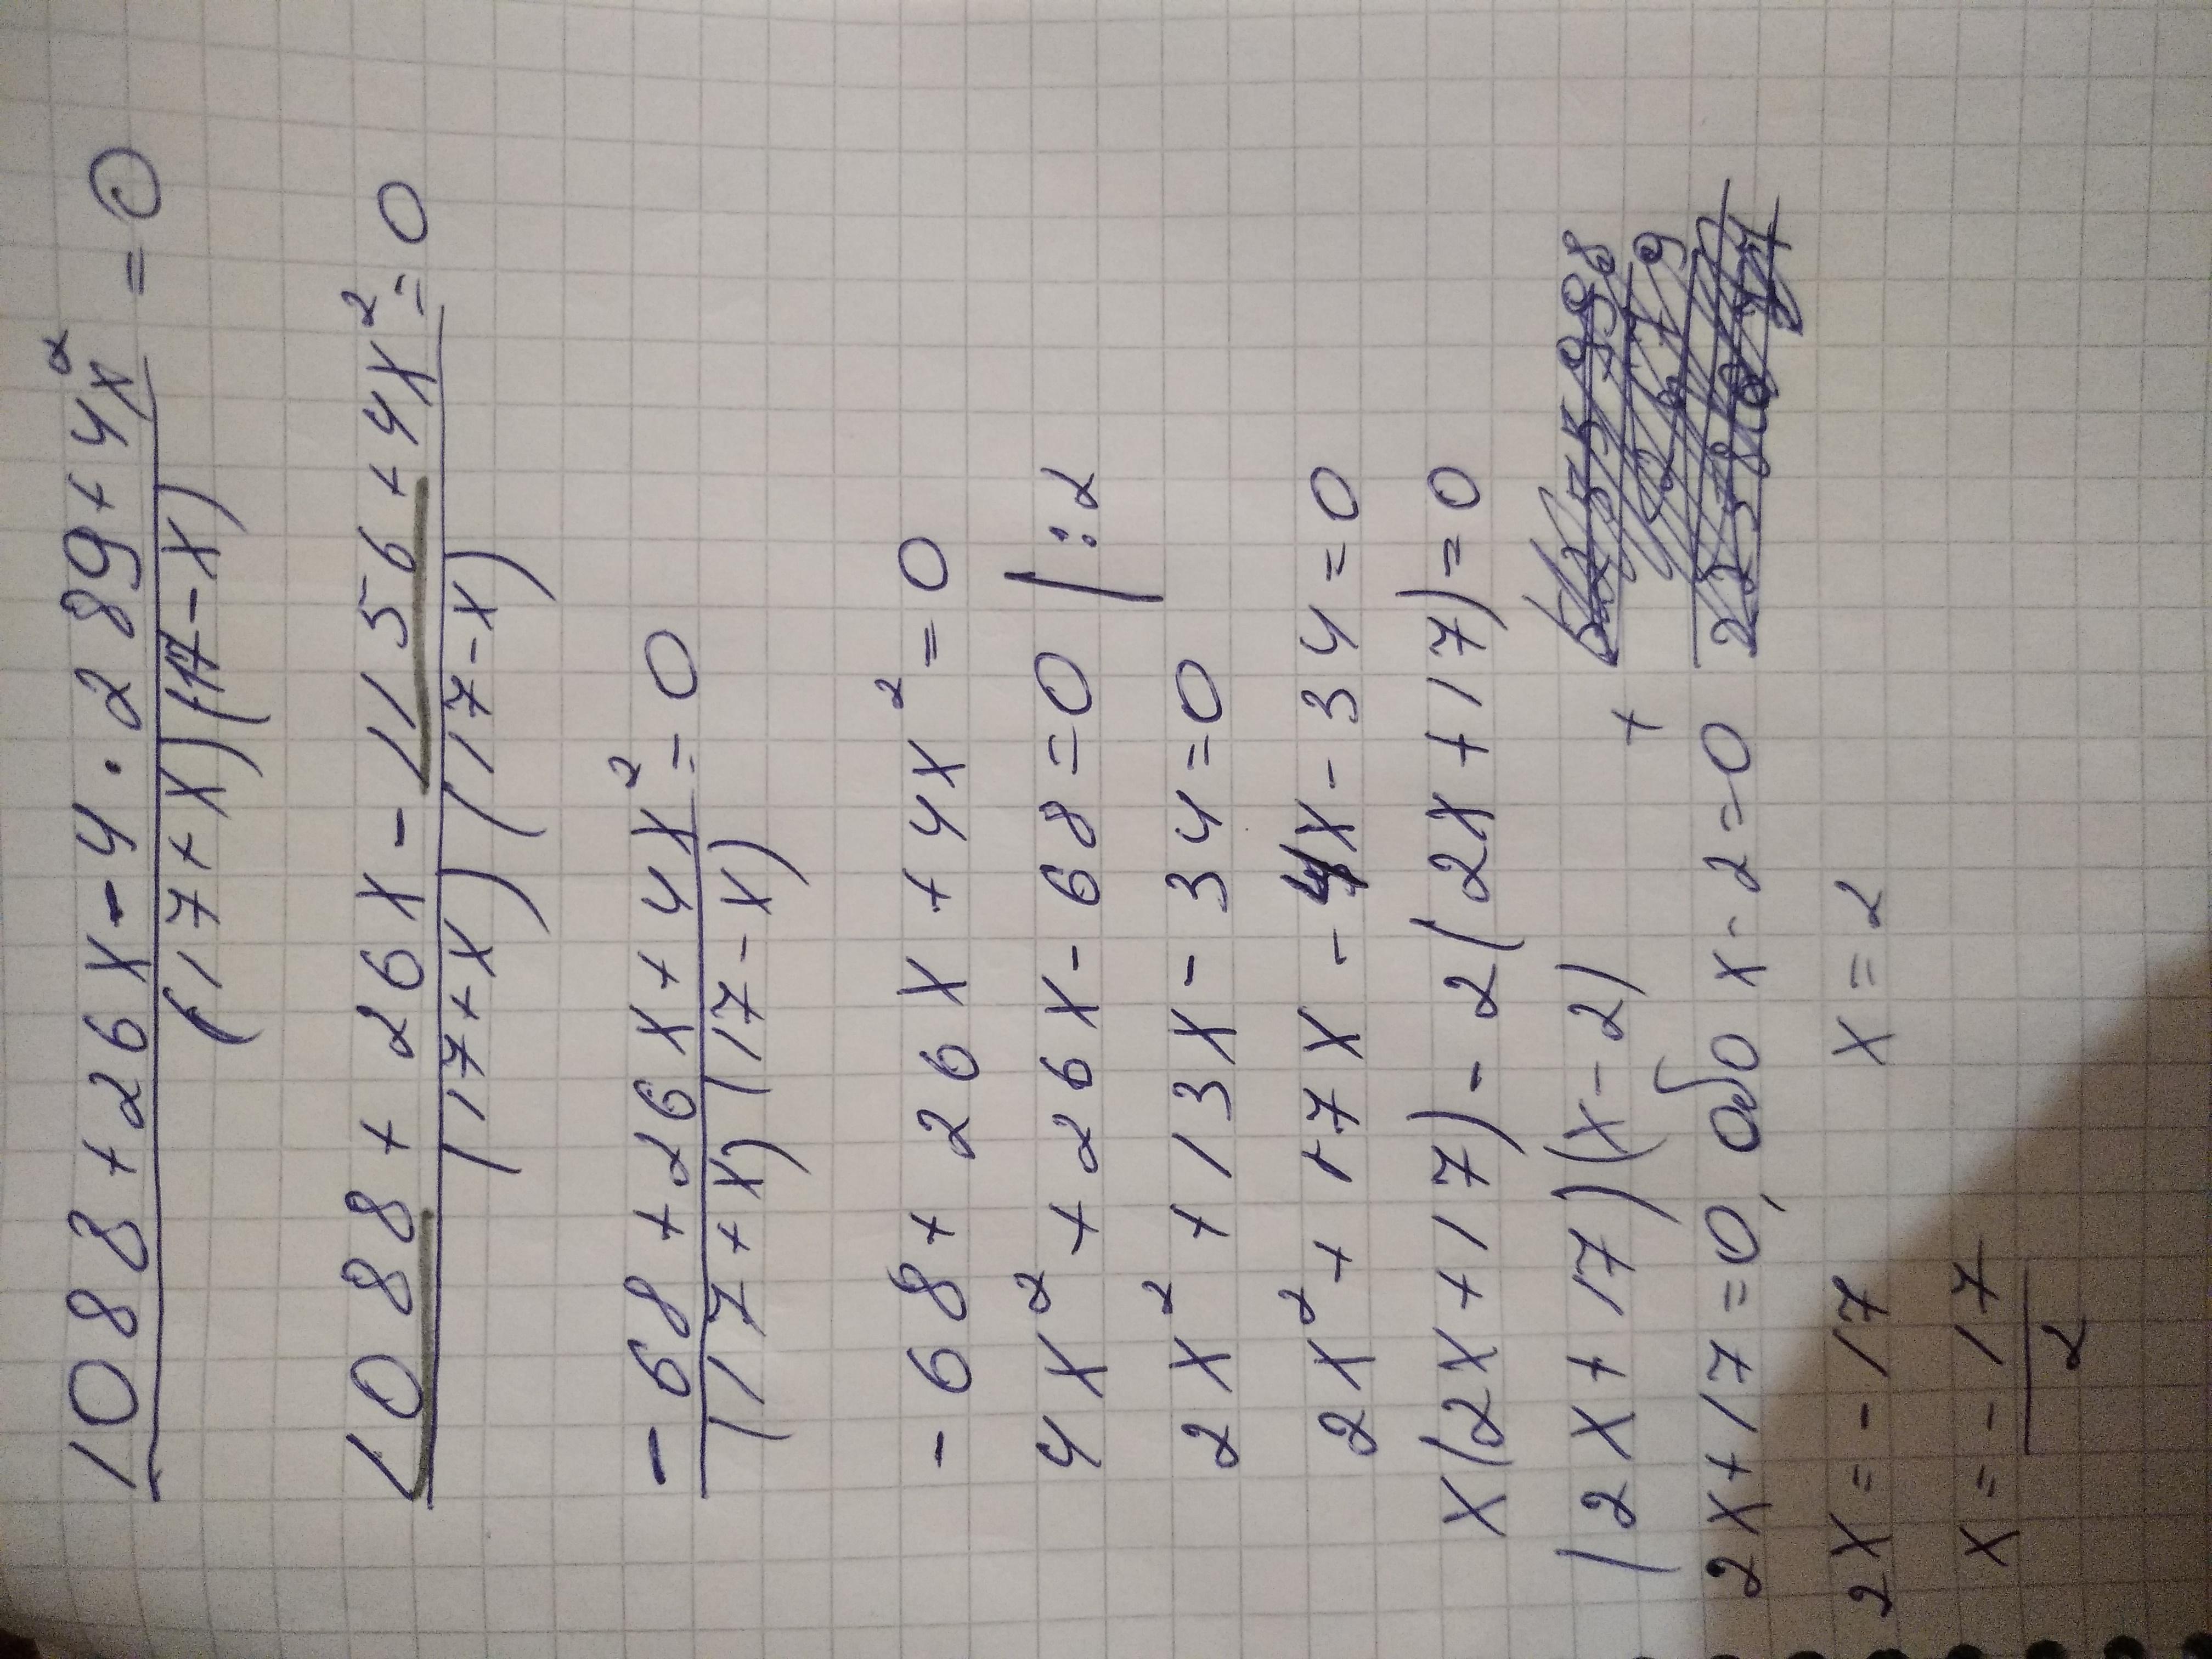 1088+26x-4·289+4x² = 0
(17+x)(17-x)
1088+26x-1156+4x² = 0
(17+x)(17-x)
-68+26x+4x² = 0
(17+x)(17-x)
-68+26x+4x²=0
4x²+26x-68=0 |:2
2x²+13x-34=0
2x²+17x-4x-34=0
x(2x+17)-2(2x+17)=0
(2x+17)(x-2)
2x+17=0, або x-2=0
2x=-17 x=2
x=-17
2